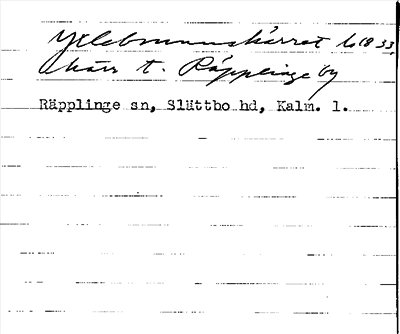 Yxlebrunnskärret Ls 1833,
kärr t. Räpplinge by
Räpplinge sn, Slättbo hd, Kalm. l.